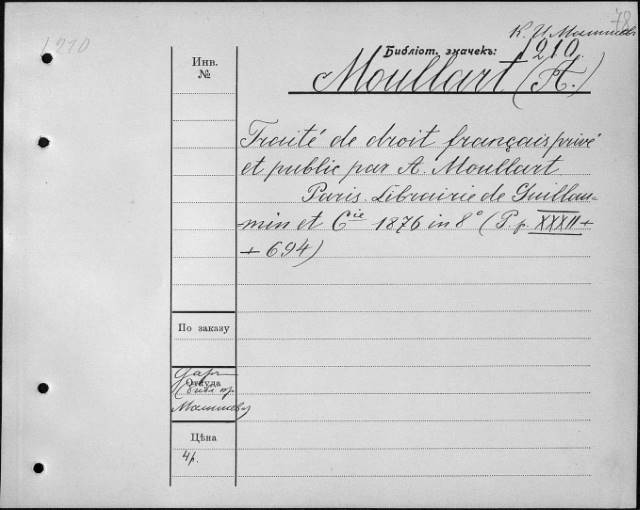 1210
78
Библіот. значекъ: 1210
Moullart (A.)
Инв.
№
Traité de droit français privé
et public par A. Moullart
Paris. Librairie de Guillau-
min et Cie 1876 in 8° (P. p. XXXII +
+ 694)
По заказу
Откуда
Цѣна
4 р.